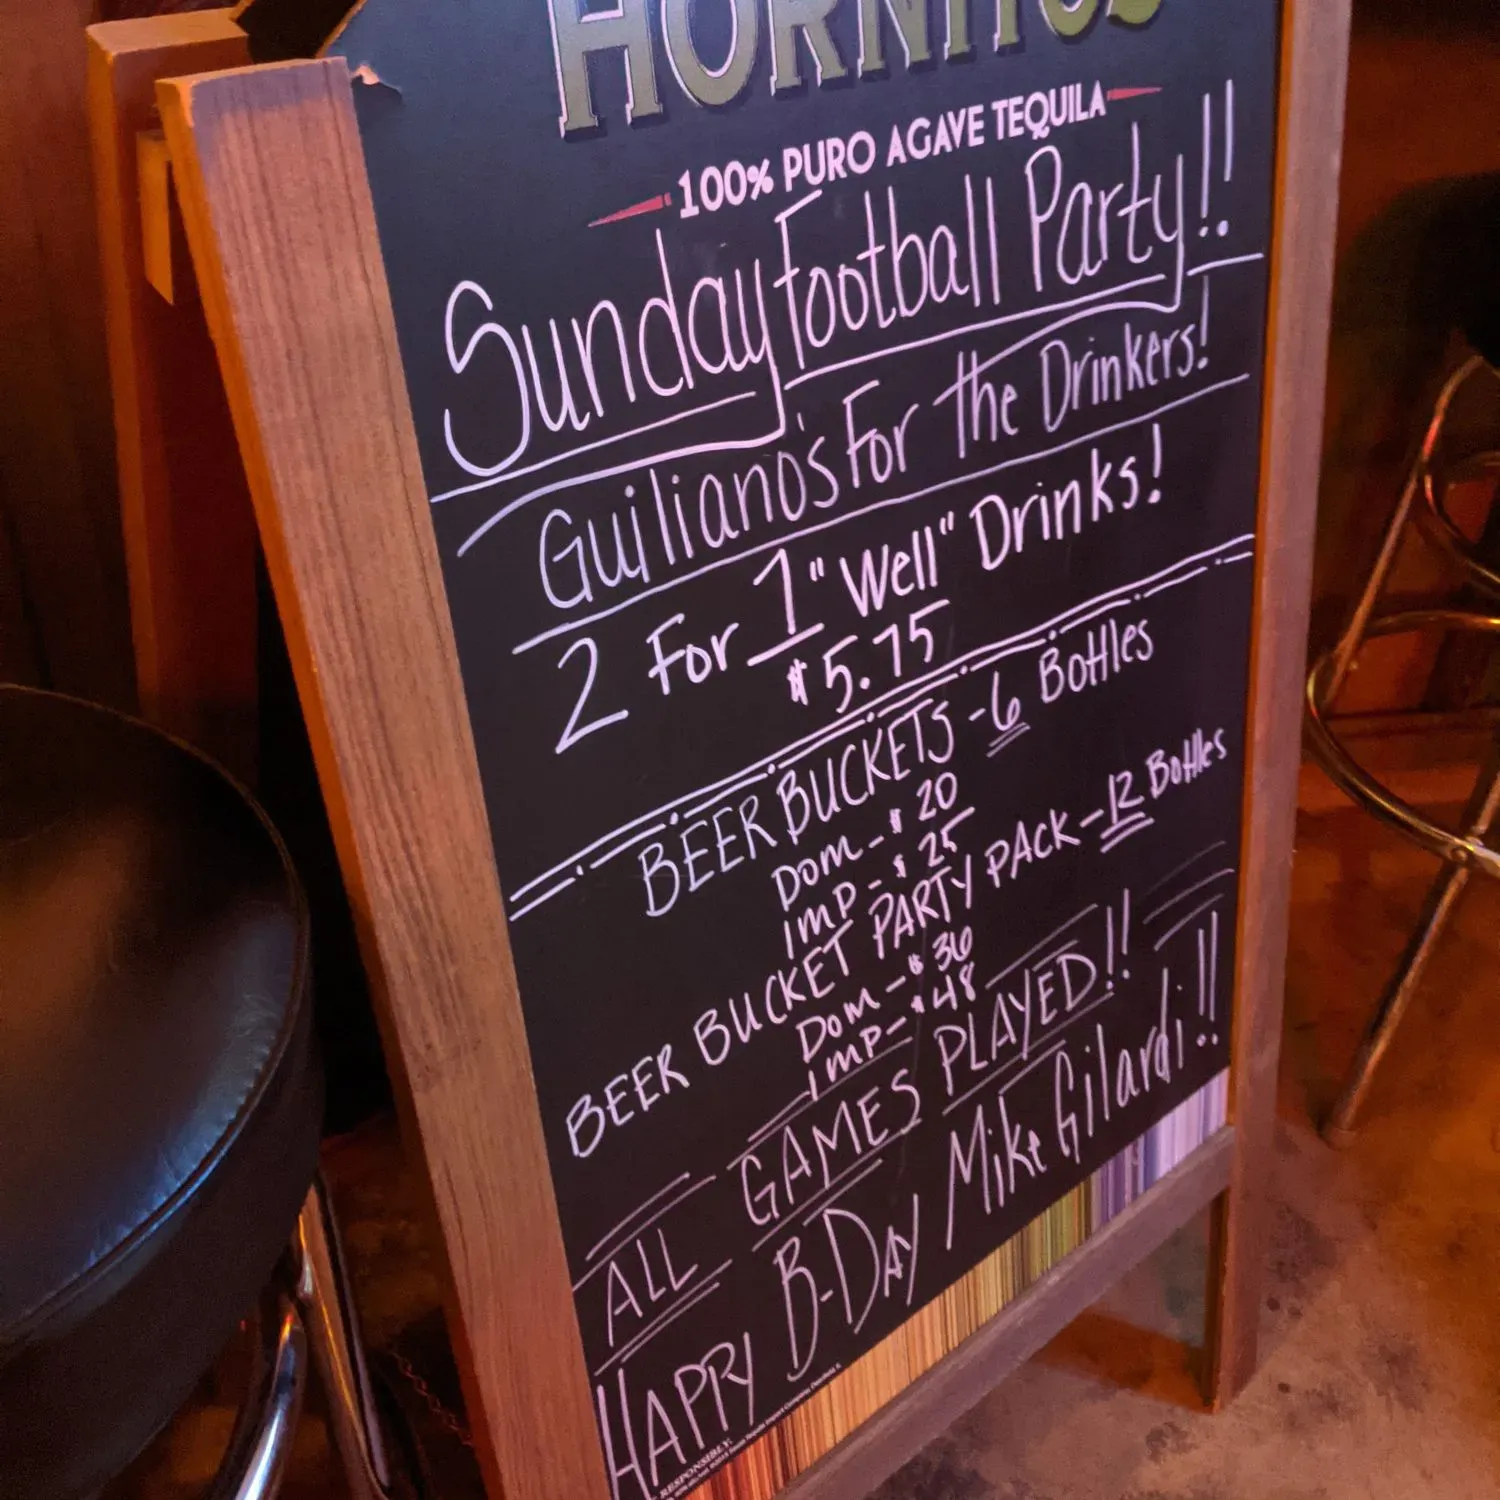 HORNITOS
100% PURO AGAVE TEQUILA
Sunday Football Party!!
Guiliano's For the Drinkers!
2 For 1 "Well" Drinks!
$5.75
BEER BUCKETS - 6 Bottles
Dom - $20
Imp - $25
BEER BUCKET PARTY PACK - 12 Bottles
Dom - $36
Imp - $48
ALL GAMES PLAYED!!
HAPPY B-DAY Mike Gilardi!!
RESPONSIBLY.